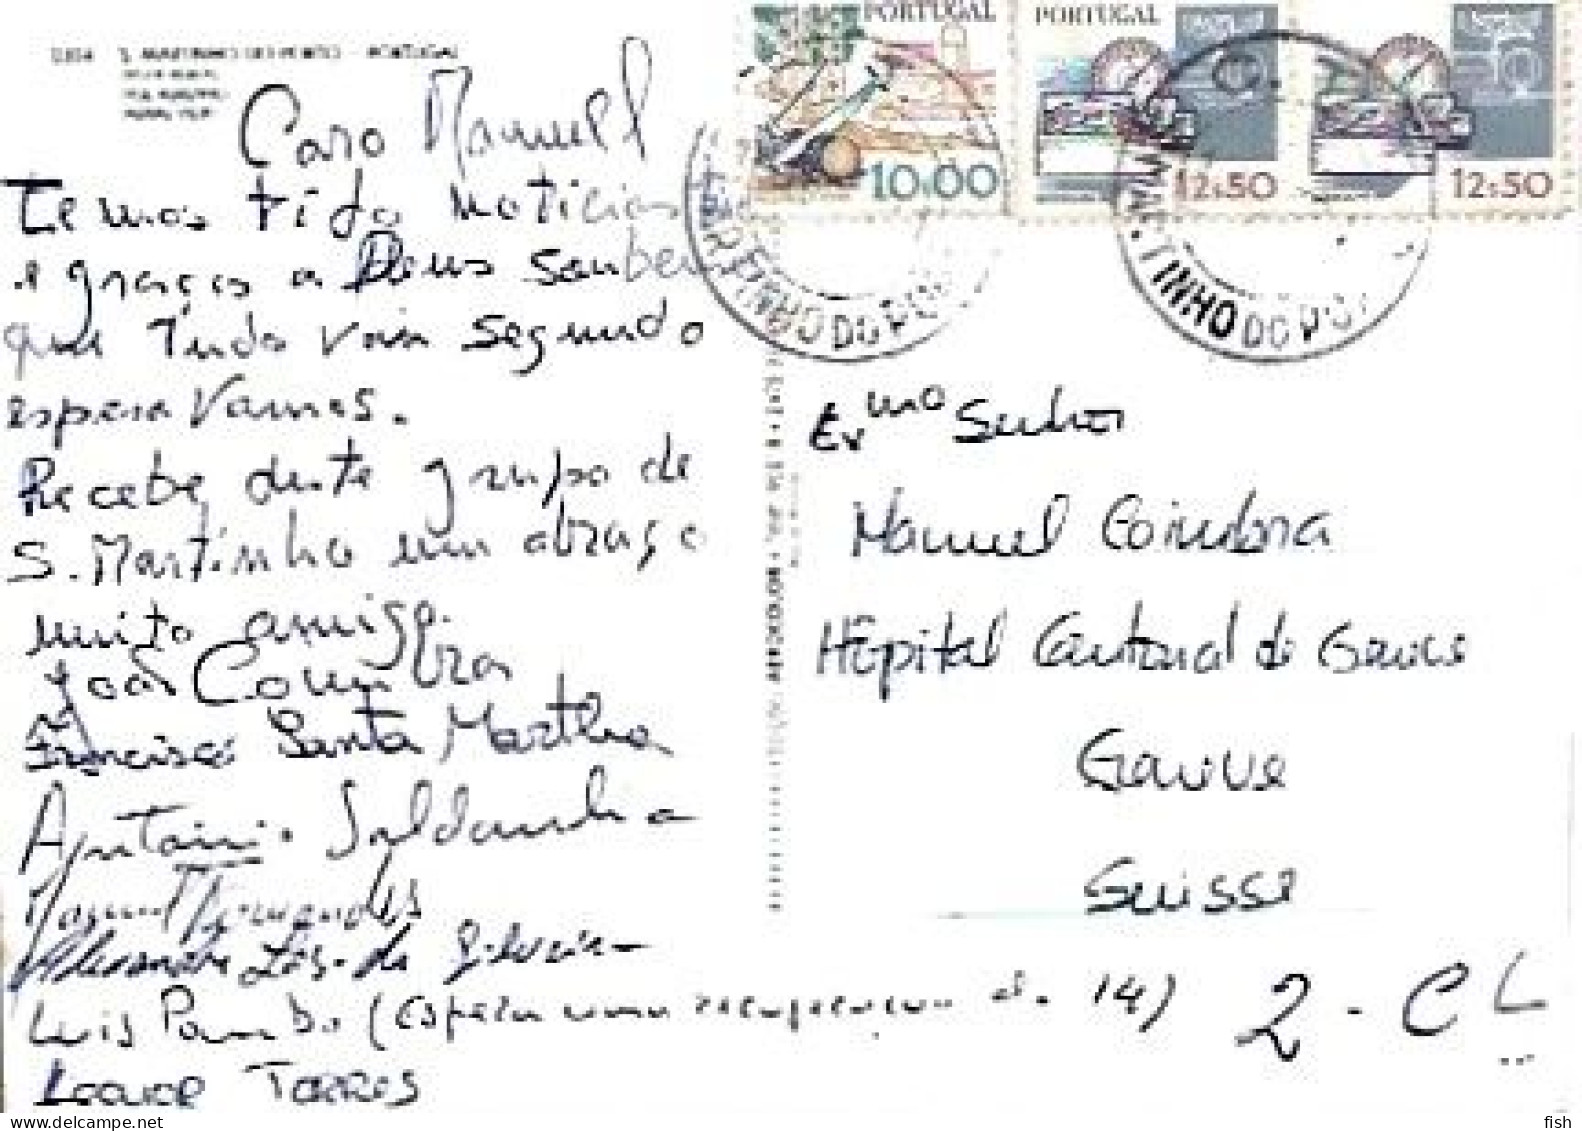 S. MARTINHO DO PORTO - PORTUGAL
Caro Manuel
Temos tido noticias
e graças a Deus soubemos
que Tudo vai segundo
esperavamos.
Recebe deste grupo de
S. Martinho um abraço
muito amigo.
João Coimbra
Francisco Santa Martha
António Saldanha
Manuel Fernandes
da
Luis Pombo (espera uma recuperacao
Torres
PORTUGAL
10.00
PORTUGAL
12:50
12:50
DO PO
TINHO DO PO
Exmo Senhor
Manuel Coimbra
Hôpital Cantonal de Geneve
Geneve
Suisse
2 - CL
fish